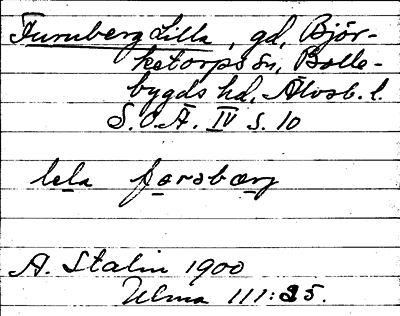 Furuberg Lilla, gd, Björ-
ketorps sn, Bolle-
bygds hd, Älvsb. l.
S.O.Ä. IV s. 10
lela
A. Stalin 1900
Ulma 111:35.